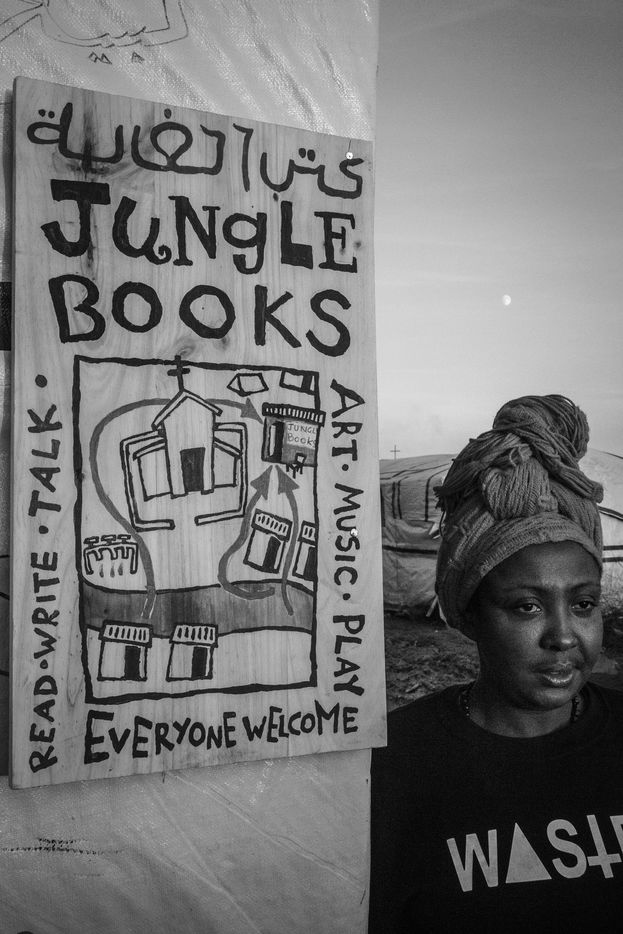 كتب الغابة
JUNGLE
BOOKS
READ·WRITE·TALK·
JUNGLE
BOOKS
ART·MUSIC·PLAY
EVERYONE WELCOME